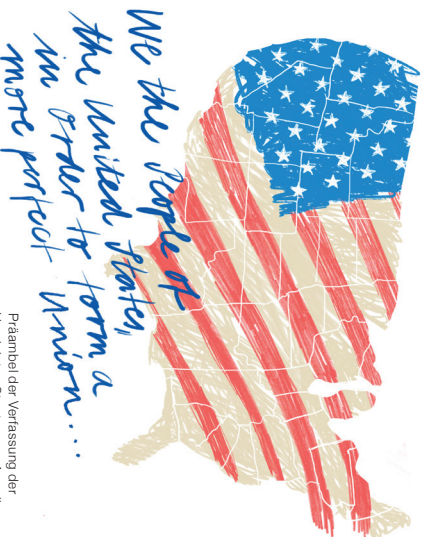 We the People of
the United States,
in Order to form a
more perfect Union...
Präambel der Verfassung der